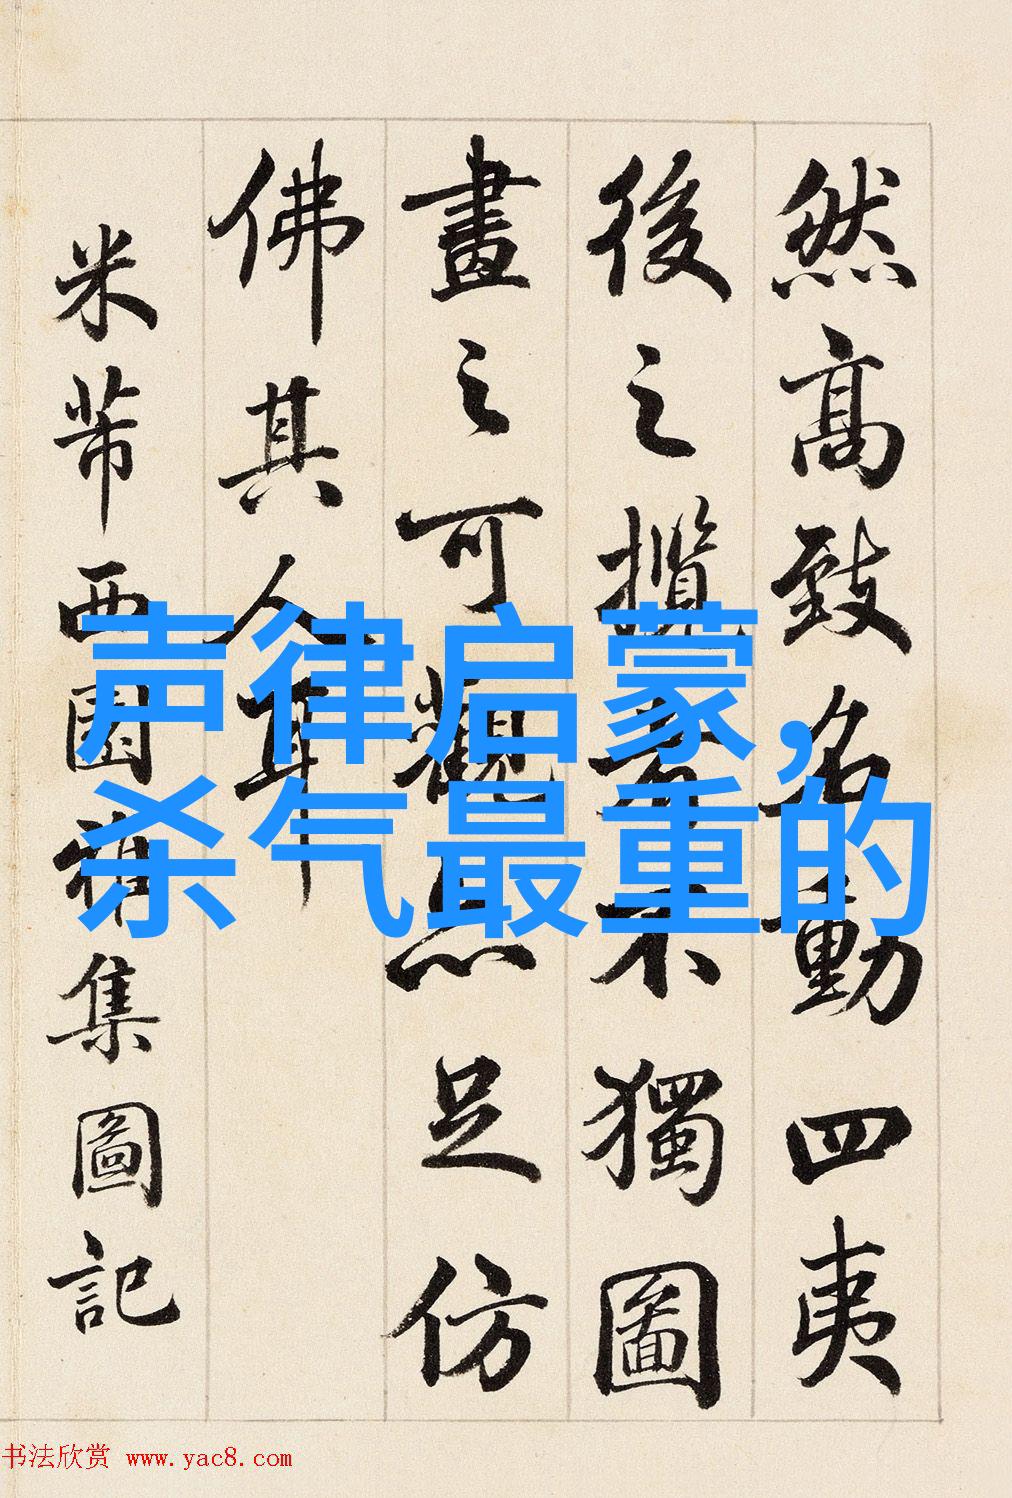 然高致名動四夷
後之攬者不獨圖
畫之可觀亦足仿
佛其人耳
米芾西園雅集圖記
声律启蒙，
杀气最重的
书法欣赏 www.yac8.com